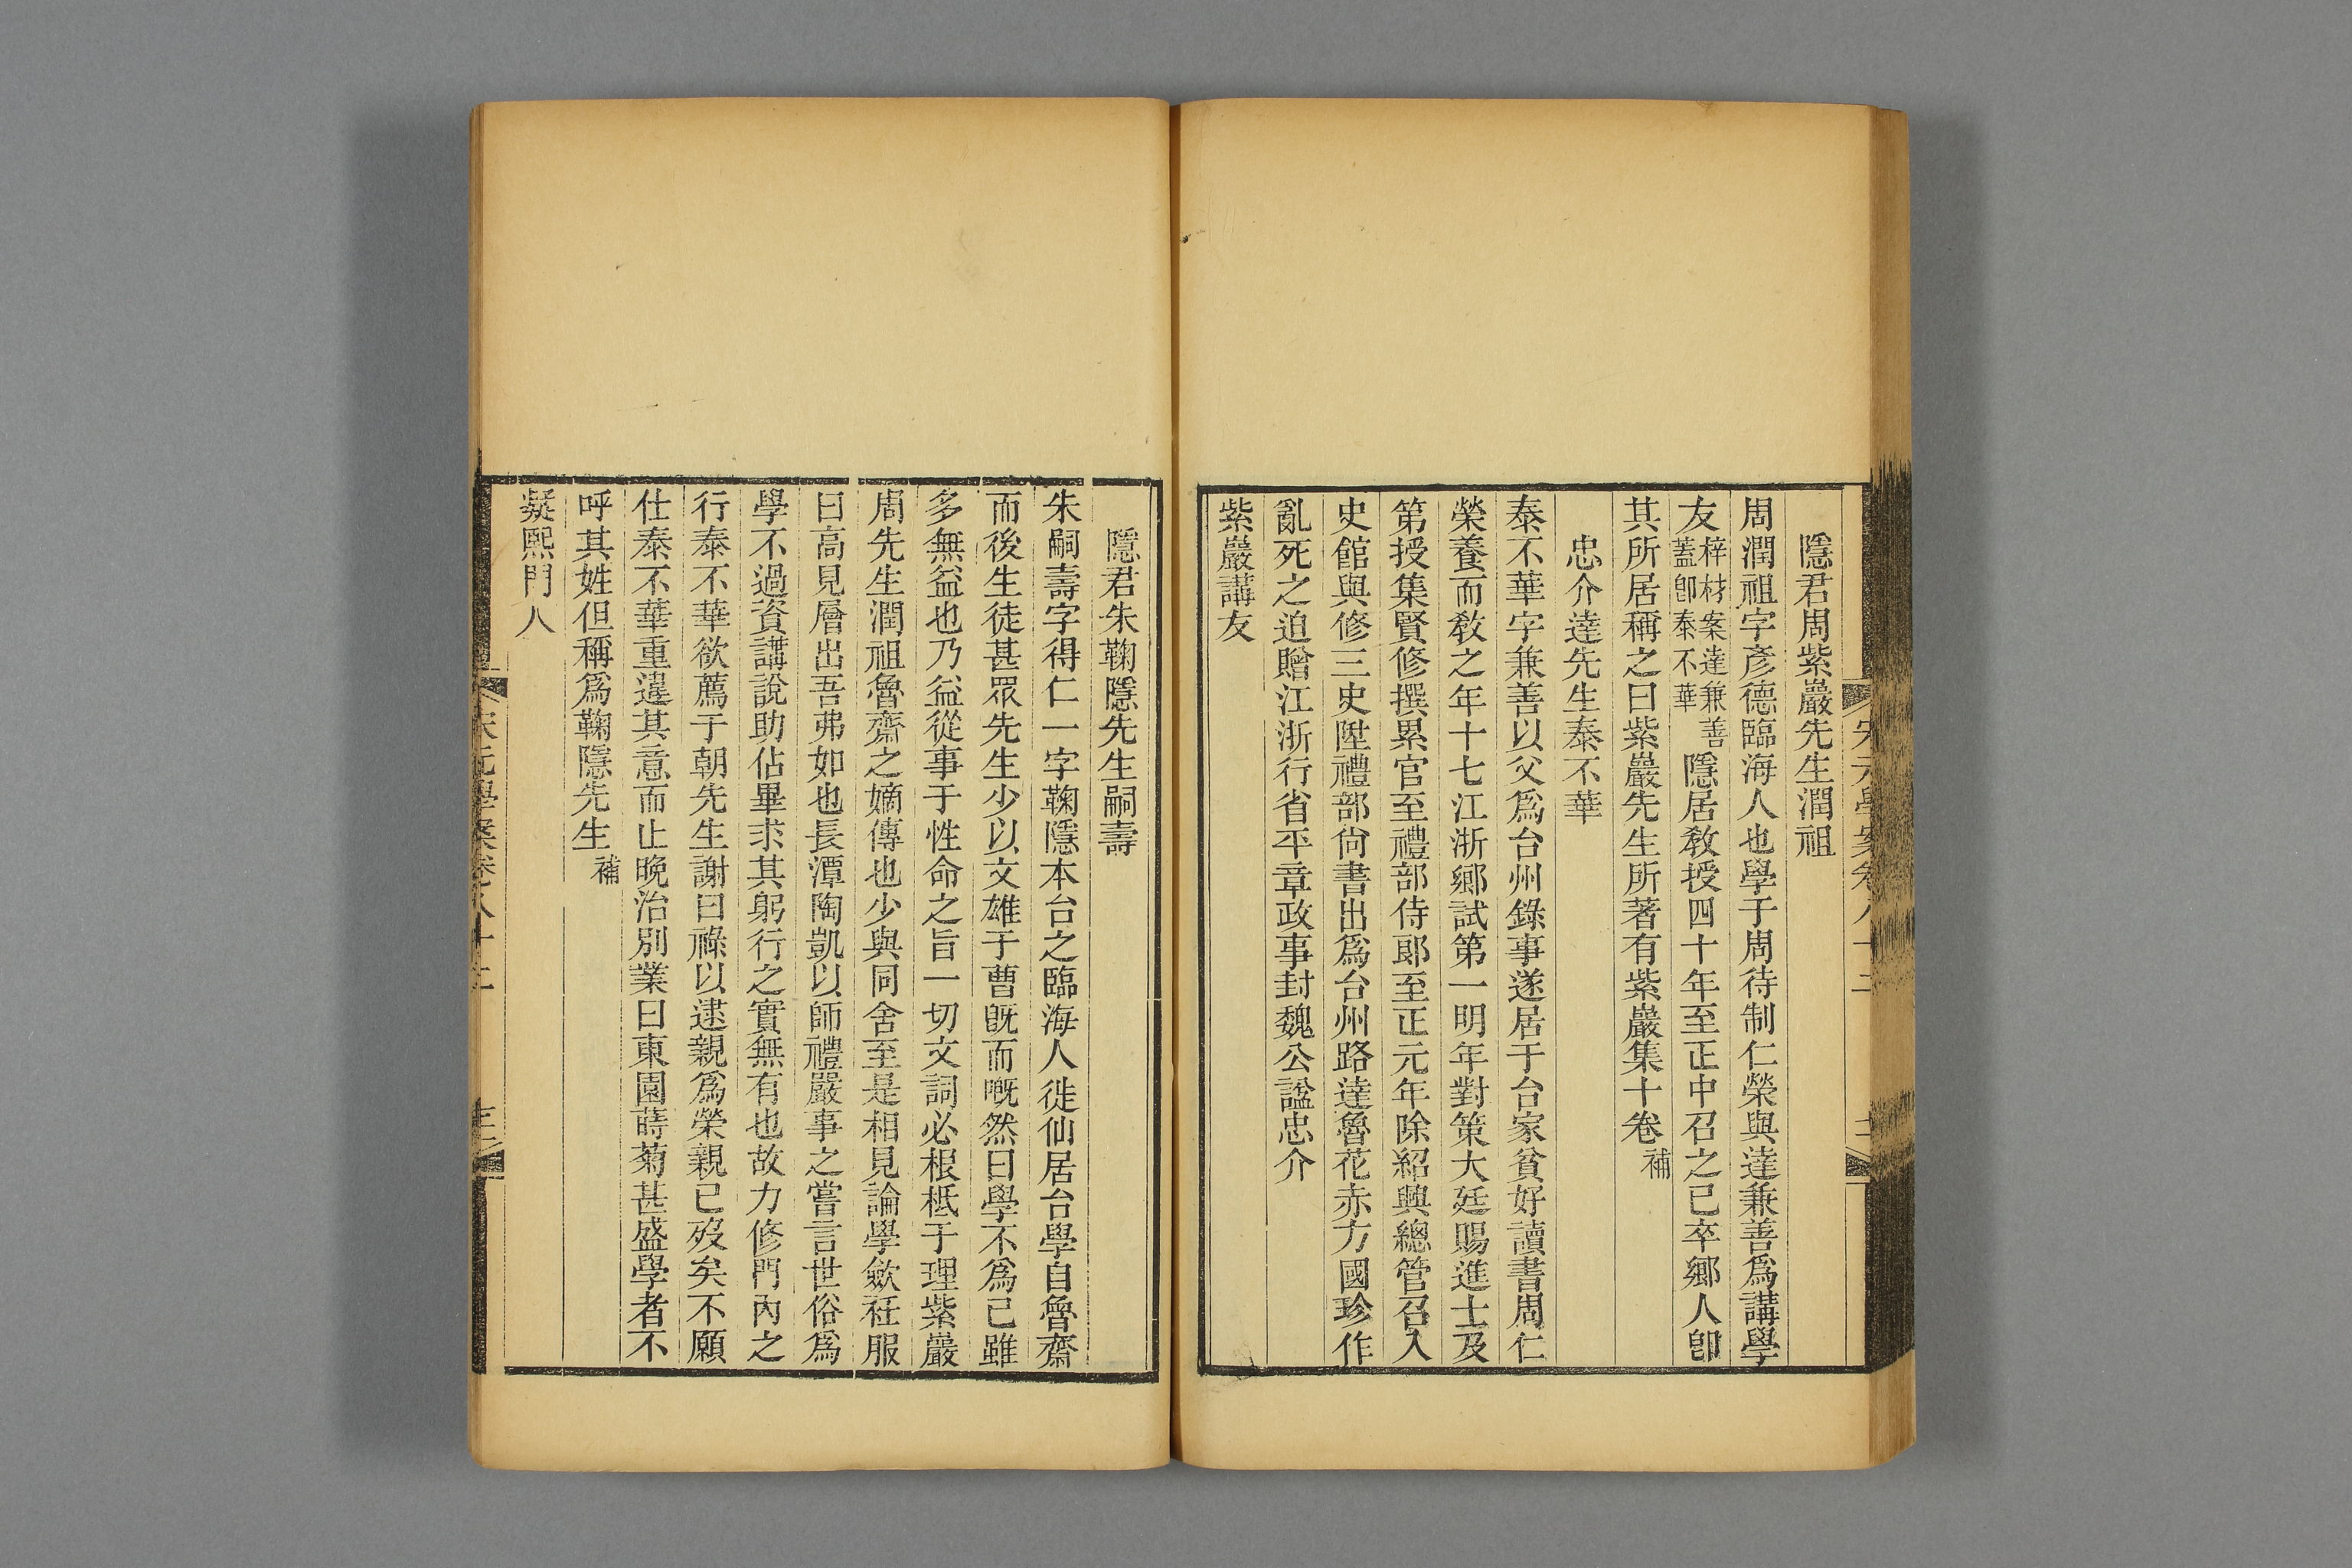 隱君周紫巖先生潤祖
周潤祖字彥德臨海人也學于周待制仁榮與達兼善爲講學
友梓材案達兼善蓋卽泰不華隱居敎授四十年至正中召之已卒鄉人卽
其所居稱之曰紫巖先生所著有紫巖集十卷補
忠介達先生泰不華
泰不華字兼善以父爲台州錄事遂居于台家貧好讀書周仁
榮養而敎之年十七江浙鄉試第一明年對策大廷賜進士及
第授集賢修撰累官至禮部侍郞至正元年除紹興總管召入
史館與修三史陞禮部尙書出爲台州路達魯花赤方國珍作
亂死之追贈江浙行省平章政事封魏公諡忠介
紫巖講友
隱君朱鞠隱先生嗣壽
朱嗣壽字得仁一字鞠隱本台之臨海人徙仙居台學自魯齋
而後生徒甚眾先生少以文雄于曹旣而嘅然曰學不爲已雖
多無益也乃益從事于性命之旨一切文詞必根柢于理紫巖
周先生潤祖魯齋之嫡傳也少與同舍至是相見論學斂衽服
曰高見層出吾弗如也長潭陶凱以師禮嚴事之嘗言世俗爲
學不過資講說助佔畢求其躬行之實無有也故力修門內之
行泰不華欲薦于朝先生謝曰祿以逮親爲榮親已歿矣不願
仕泰不華重違其意而止晚治別業曰東園蒔菊甚盛學者不
呼其姓但稱爲鞠隱先生補
凝熙門人
宋元學案卷八十二